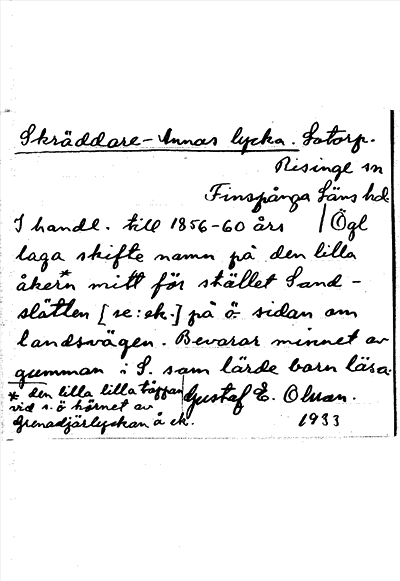 Skräddare-Annas lycka. Sotorp.
Risinge sn
Finspånga Läns hd
I handl. till 1856-60 års | Ögl
laga skifte namn på den lilla
åkern* mitt för stället Sand-
slätten [se: ek.] på ö. sidan om
landsvägen. Bevarar minnet av
gumman i S. som lärde barn läsa.
* den lilla lilla täppan
vid s.ö hörnet av
Grenadjärlyckan å ek.
Gustaf E. Olsson.
1933